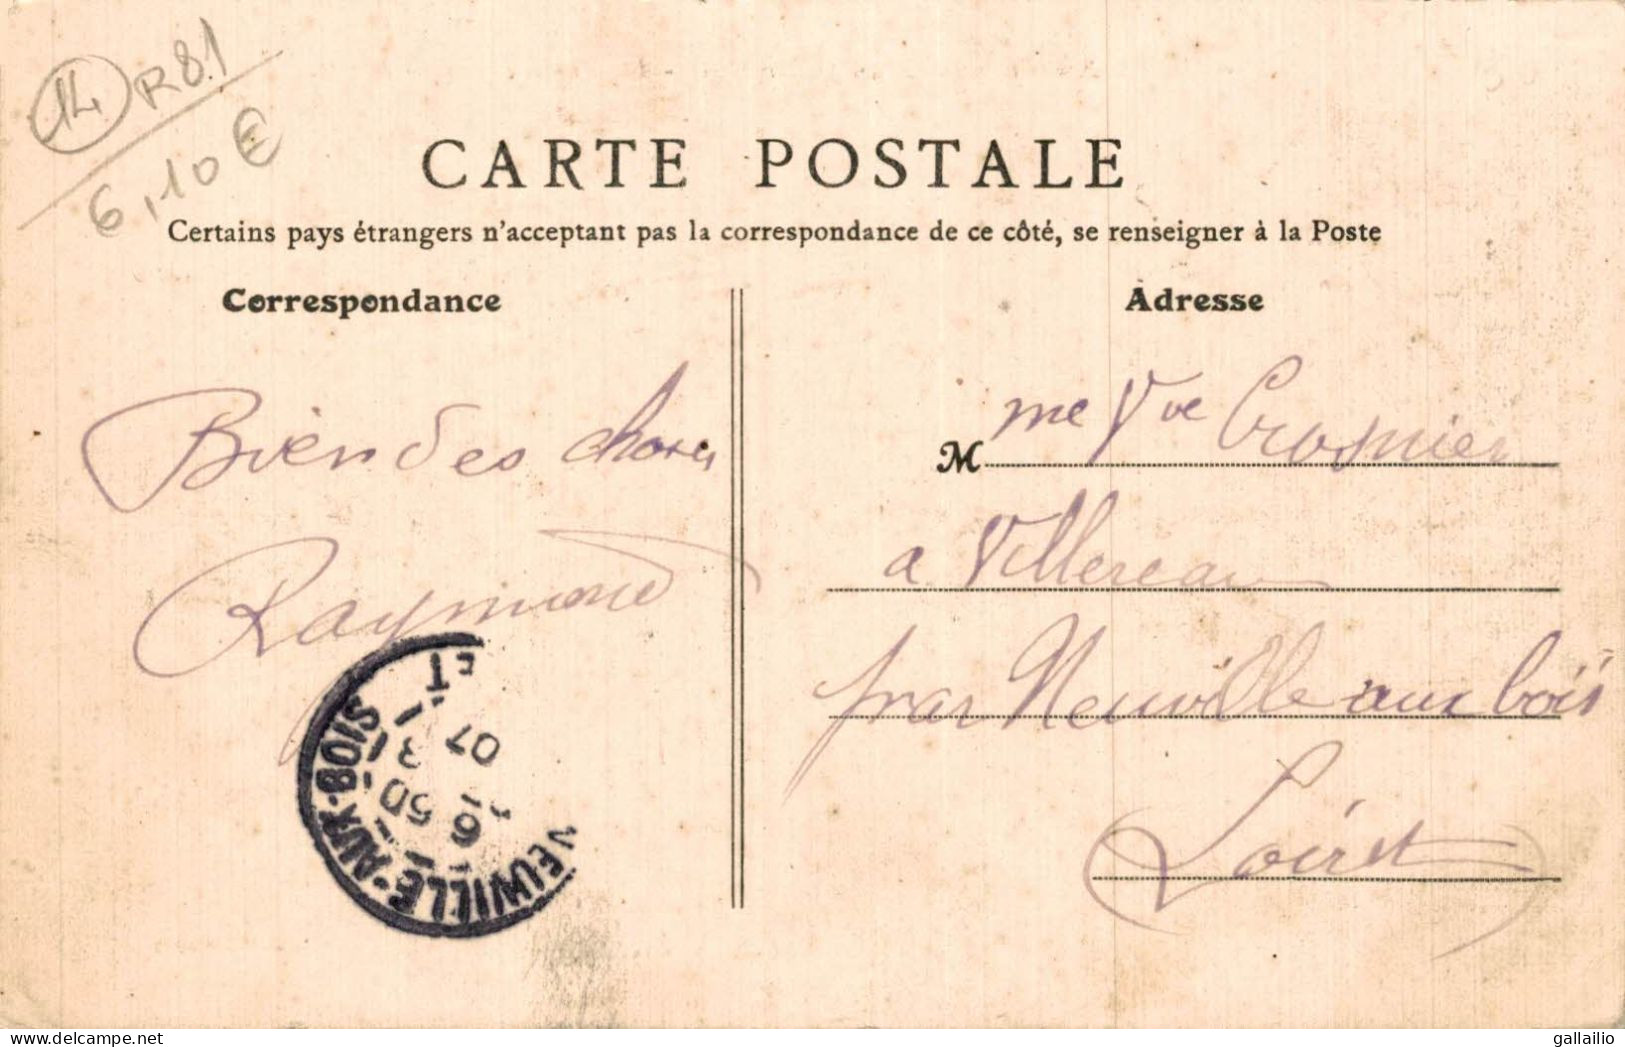 14 R81
6,10 €
CARTE POSTALE
Certains pays étrangers n'acceptant pas la correspondance de ce côté, se renseigner à la Poste
Correspondance
Bien des choses
Raymond
NEUVILLE-AUX-BOIS
16
5D
3
07
ET
Adresse
M me Vve Crosnier
a Villereau
par Neuville aux bois
Loiret
delcampe.net
gallailio